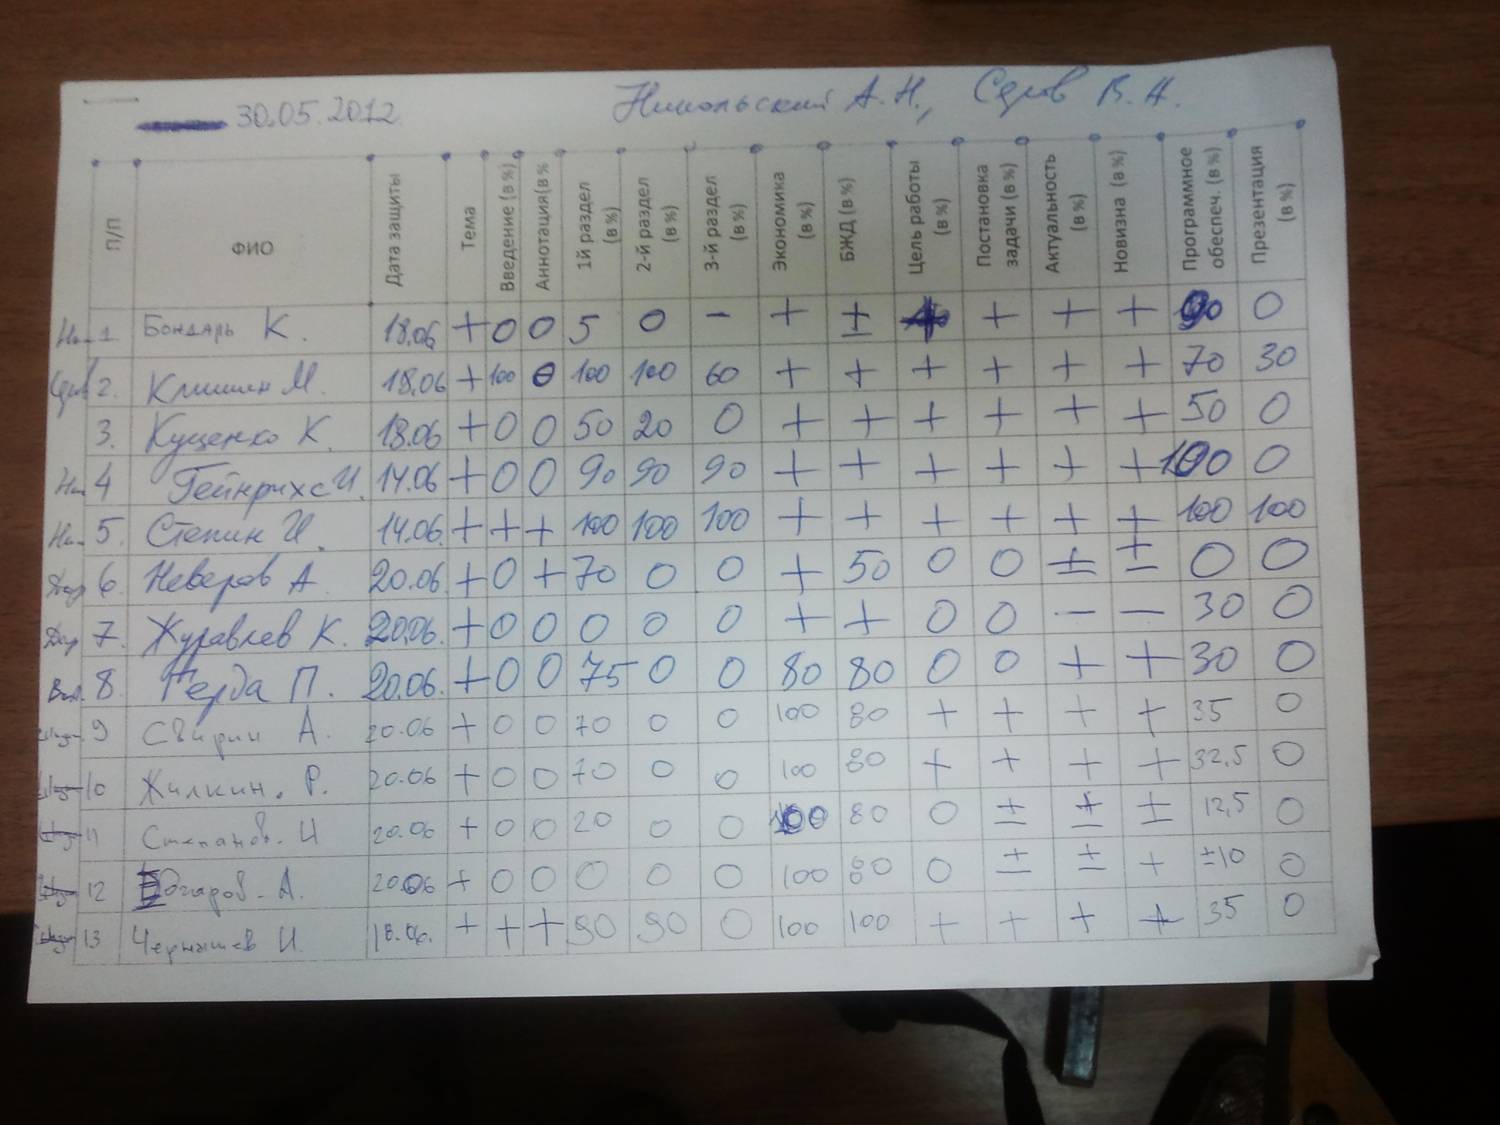 30.05.2012 Никольский А.Н., Серов В.А.
П/П ФИО Дата защиты Тема Введение (в %) Аннотация(в% 1й раздел (в %) 2-й раздел (в %) 3-й раздел (в %) Экономика (в %) БЖД (в %) Цель работы (в %) Постановка задачи (в %) Актуальность (в %) Новизна (в %) Программное обеспеч. (в %) Презентация (в %)
1 Бондарь К. 18.06 + 0 0 5 0 - + ± + + + + 90 0
2. Клишин М. 18.06 + 100 0 100 100 60 + + + + + + 70 30
3. Куценко К. 18.06 + 0 0 50 20 0 + + + + + + 50 0
4 Гейнрихс И. 14.06 + 0 0 90 90 90 + + + + + + 100 0
5. Степин И. 14.06. + + + 100 100 100 + + + + + + 100 100
6 Неверов А. 20.06 + 0 + 70 0 0 + 50 0 0 ± ± 0 0
7. Журавлев К. 20.06. + 0 0 0 0 0 + + 0 0 - - 30 0
8. Герда П. 20.06. + 0 0 75 0 0 80 80 0 0 + + 30 0
9 Свирин А. 20.06 + 0 0 70 0 0 100 80 + + + + 35 0
10 Жилкин. Р. 20.06 + 0 0 70 0 0 100 80 + + + + 32,5 0
11 Степанов. И 20.06 + 0 0 20 0 0 100 80 0 ± ± ± 12,5 0
12 Бочаров. А. 20.06 + 0 0 0 0 0 100 80 0 ± ± + ±10 0
13 Чернышев И. 18.06. + + + 90 90 0 100 100 + + + + 35 0